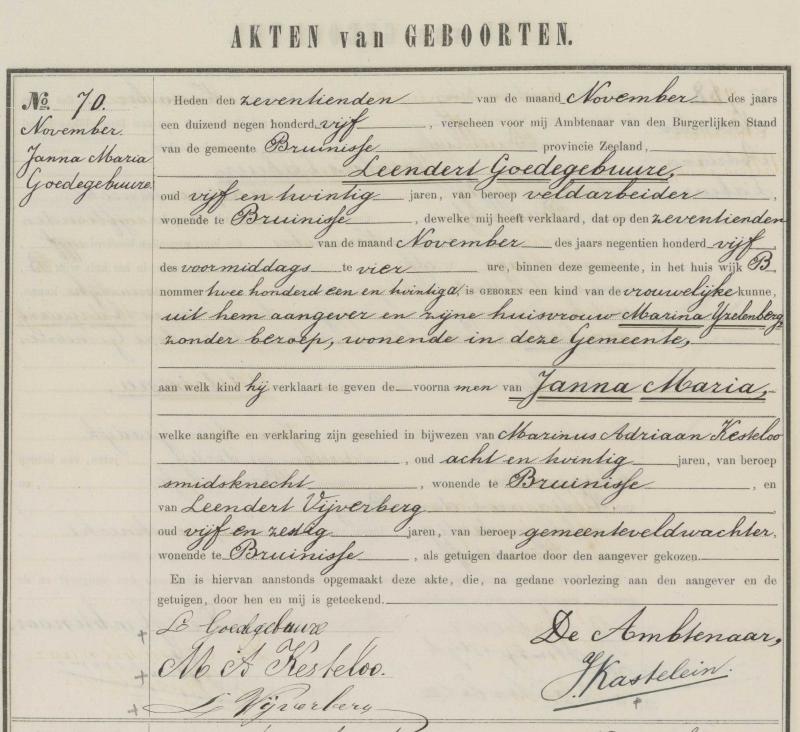 AKTEN van GEBOORTEN.
No. 70.
November.
Janna Maria
Goedegebuure.
Heden den zeventienden van de maand November des jaars
een duizend negen honderd vijf, verscheen voor mij Ambtenaar van den Burgerlijken Stand
van de gemeente Bruinisse provincie Zeeland,
Leendert Goedegebuure,
oud vijf en twintig jaren, van beroep veldarbeider,
wonende te Bruinisse, dewelke mij heeft verklaard, dat op den zeventienden
van de maand November des jaars negentien honderd vijf
des voormiddags te vier ure, binnen deze gemeente, in het huis wijk B
nommer twee honderd een en twintig a, is GEBOREN een kind van de vrouwelijke kunne,
uit hem aangever en zijne huisvrouw Marina Yzelenberg,
zonder beroep, wonende in deze Gemeente,
aan welk kind hij verklaart te geven de voornamen van Janna Maria,
welke aangifte en verklaring zijn geschied in bijwezen van Marinus Adriaan Kesteloo
, oud acht en twintig jaren, van beroep
smidsknecht, wonende te Bruinisse, en
van Leendert Vijverberg,
oud vijf en zestig jaren, van beroep gemeenteveldwachter,
wonende te Bruinisse, als getuigen daartoe door den aangever gekozen.
En is hiervan aanstonds opgemaakt deze akte, die, na gedane voorlezing aan den aangever en de
getuigen, door hen en mij is geteekend.
L Goedegebuure
De Ambtenaar,
M A Kesteloo.
J. Kastelein.
L Vijverberg